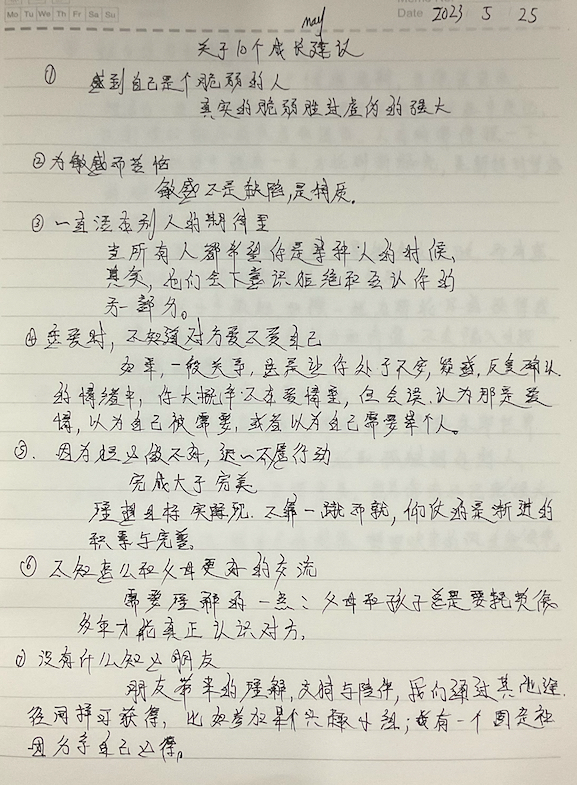 Mo Tu We Th Fr Sa Su
Date 2023 5 25
may
关于10个成长建议
① 感到自己是个脆弱的人
真实的脆弱胜过虚伪的强大
② 为敏感而苦恼
敏感不是缺陷,是特质。
③ 一直活在别人的期待里
当所有人都希望你是某种人的时候,
其实,他们会下意识拒绝和否认你的
另一部分。
④ 恋爱时,不知道对方爱不爱自己
如果,一段关系,总是让你处于不安,疑惑,反复确认
的情绪中,你大概率不在爱情里,但会误认为那是爱
情,以为自己被需要,或者以为自己需要某个人。
⑤. 因为担心做不好,迟迟不愿行动
完成大于完美
理想目标实现,不靠一蹴而就,仰仗的是渐进的
积累与完善。
⑥ 不知怎么和父母更好的交流
需要理解的一点:父母和孩子总是要耗费很
多年才能真正认识对方。
⑦ 没有什么知心朋友
朋友带来的理解,支持与陪伴,我们通过其他途
径同样可获得,比如参加某个兴趣小组;或有一个固定社